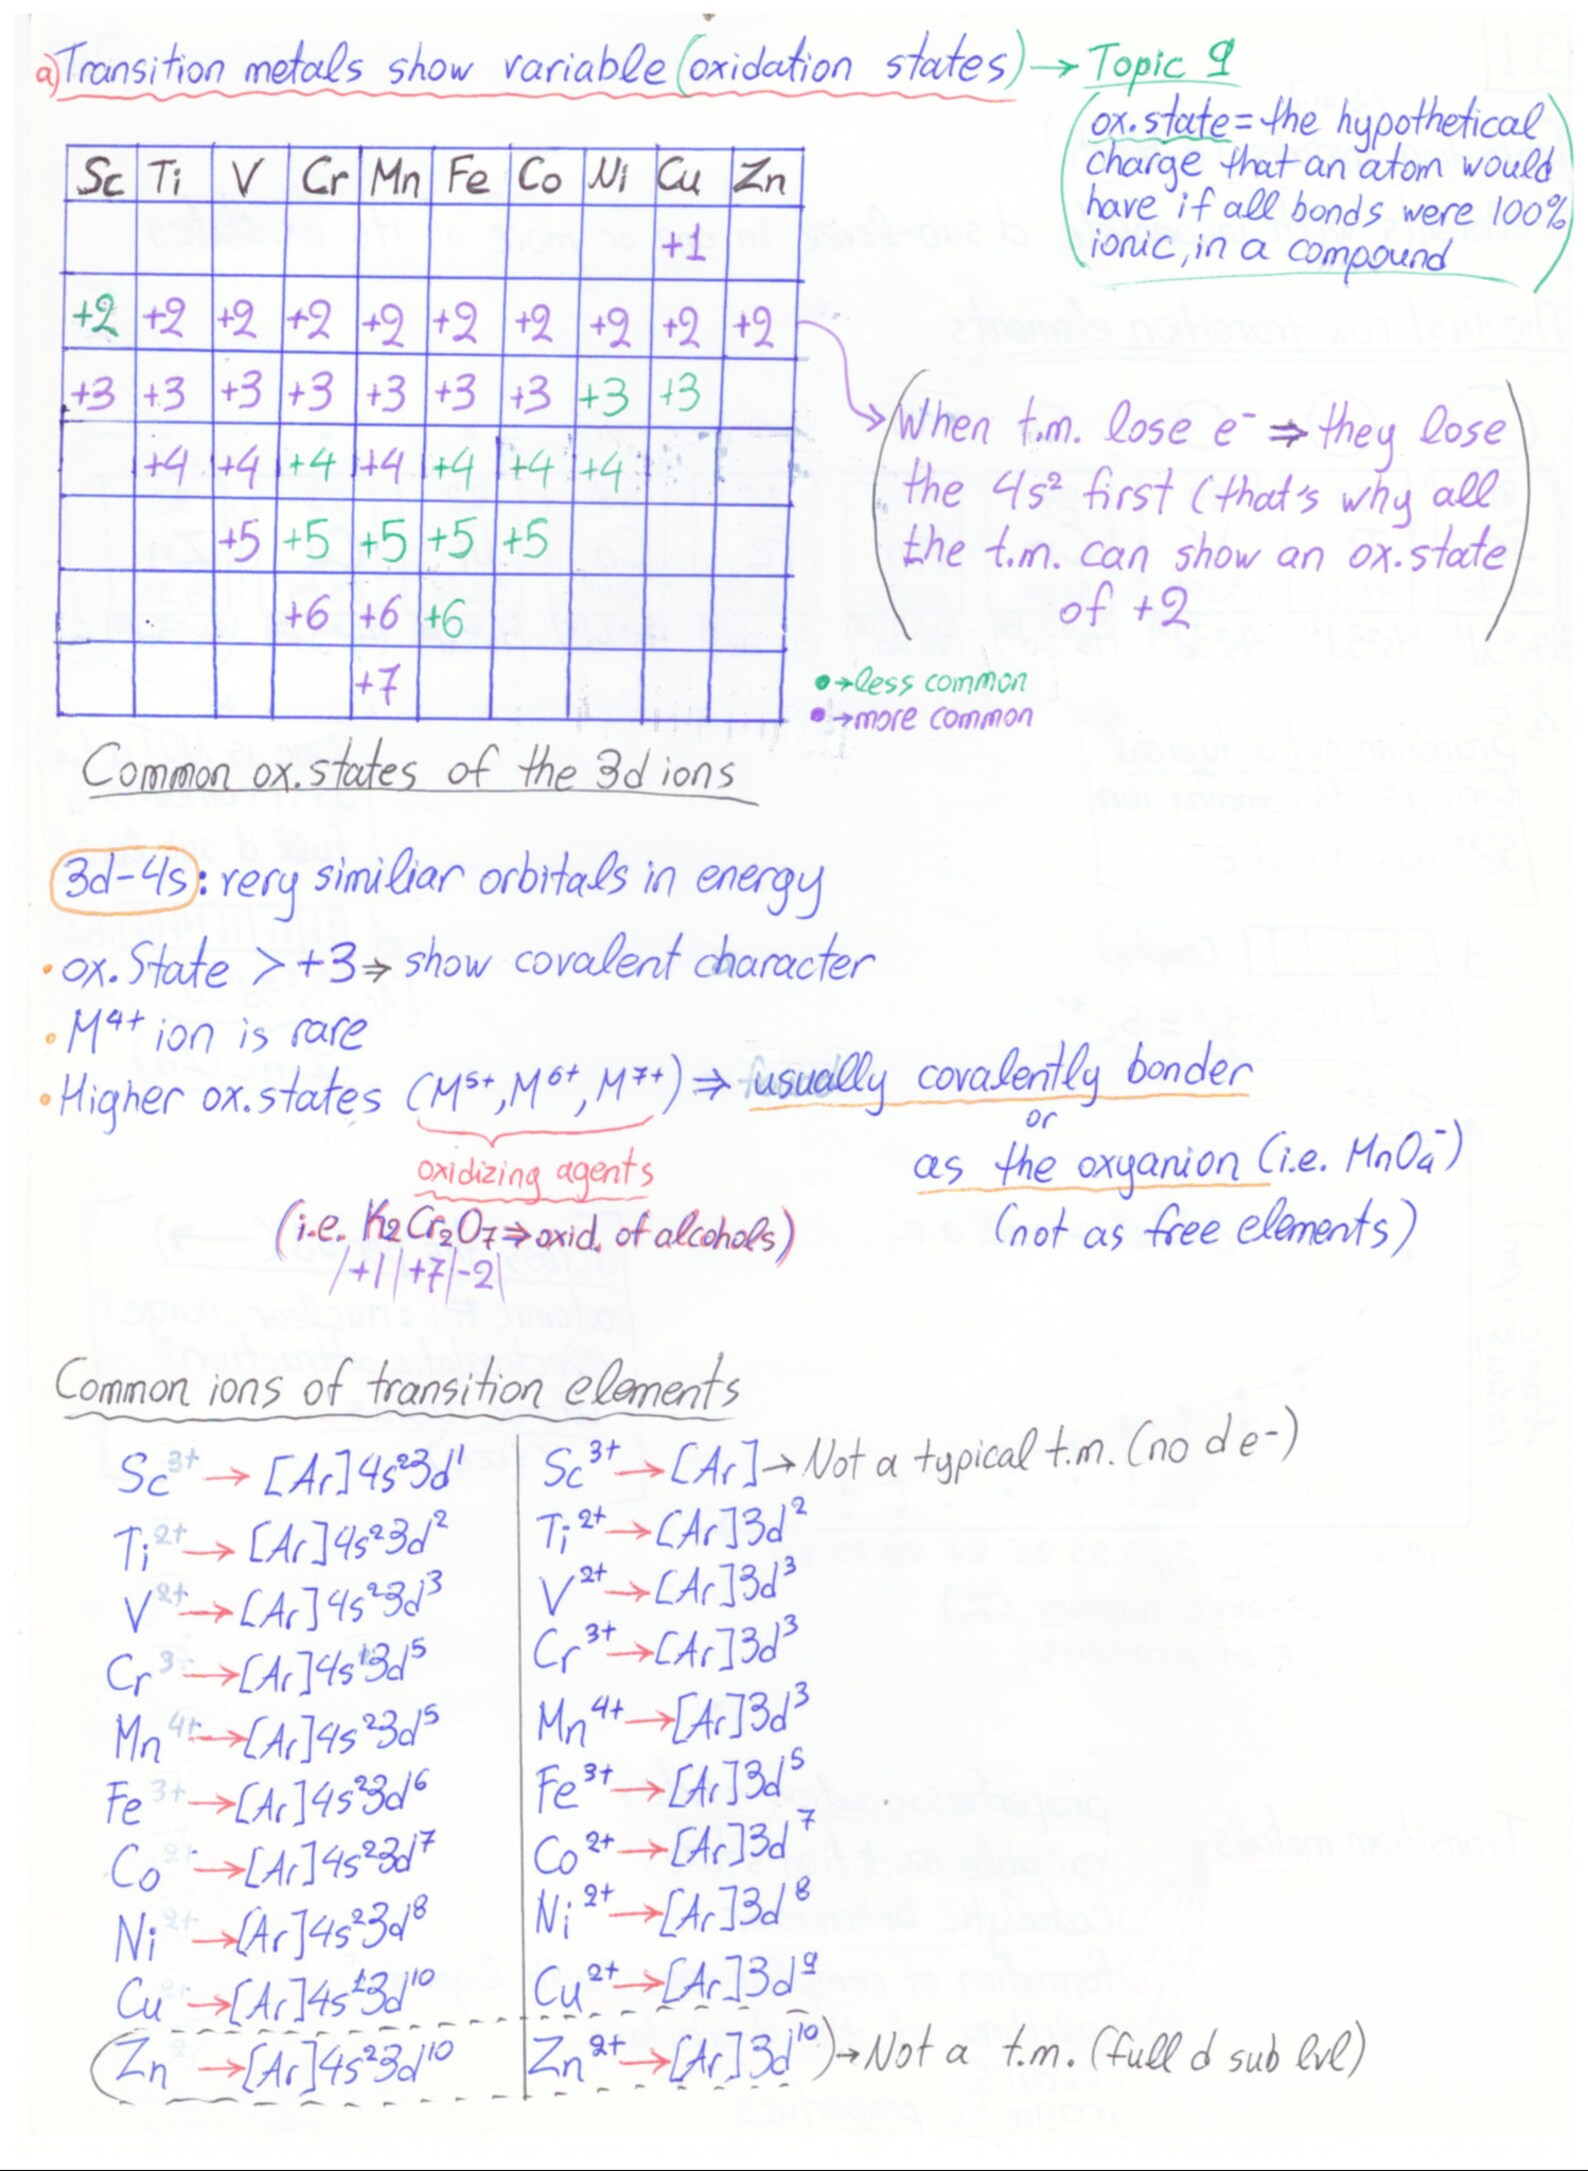 a) Transition metals show variable (oxidation states) → Topic 9
(ox. state = the hypothetical
charge that an atom would
have if all bonds were 100%
ionic, in a compound)
Sc Ti V Cr Mn Fe Co Ni Cu Zn
+1
+2 +2 +2 +2 +2 +2 +2 +2 +2 +2
+3 +3 +3 +3 +3 +3 +3 +3 +3
+4 +4 +4 +4 +4 +4 +4
+5 +5 +5 +5 +5
+6 +6 +6
+7
(When t.m. lose e⁻ ⇒ they lose
the 4s² first (that's why all
the t.m. can show an ox. state
of +2)
• → less common
• → more common
Common ox. states of the 3d ions
3d-4s: very similiar orbitals in energy
• ox. State > +3 ⇒ show covalent character
• M⁴⁺ ion is rare
• Higher ox. states (M⁵⁺, M⁶⁺, M⁷⁺) ⇒ usually covalently bonder
or
as the oxyanion (i.e. MnO₄⁻)
(not as free elements)
oxidizing agents
(i.e. K₂Cr₂O₇ ⇒ oxid. of alcohols)
/+1|+7|-2|
Common ions of transition elements
Sc³⁺ → [Ar]4s²3d¹ Sc³⁺ → [Ar] → Not a typical t.m. (no d e-)
Ti²⁺ → [Ar]4s²3d² Ti²⁺ → [Ar]3d²
V²⁺ → [Ar]4s²3d³ V²⁺ → [Ar]3d³
Cr³⁻ → [Ar]4s¹3d⁵ Cr³⁺ → [Ar]3d³
Mn⁴⁺ → [Ar]4s²3d⁵ Mn⁴⁺ → [Ar]3d³
Fe³⁺ → [Ar]4s²3d⁶ Fe³⁺ → [Ar]3d⁵
Co²⁺ → [Ar]4s²3d⁷ Co²⁺ → [Ar]3d⁷
Ni²⁺ → [Ar]4s²3d⁸ Ni²⁺ → [Ar]3d⁸
Cu²⁺ → [Ar]4s¹3d¹⁰ Cu²⁺ → [Ar]3d⁹
(Zn → [Ar]4s²3d¹⁰ Zn²⁺ → [Ar]3d¹⁰) → Not a t.m. (full d sub lvl)